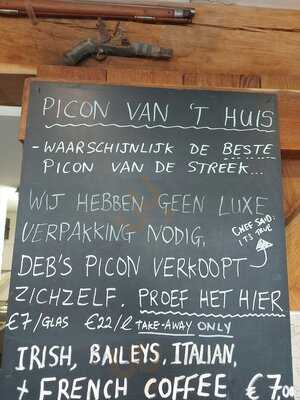 PICON VAN 'T HUIS
- WAARSCHIJNLIJK DE BESTE
PICON VAN DE STREEK...
WIJ HEBBEN GEEN LUXE
VERPAKKING NODIG,
CHEF SAID:
IT'S TRUE
DEB'S PICON VERKOOPT
ZICHZELF. PROEF HET HIER
€7/GLAS €22/ℓ TAKE-AWAY ONLY
IRISH, BAILEYS, ITALIAN,
+ FRENCH COFFEE €7,00